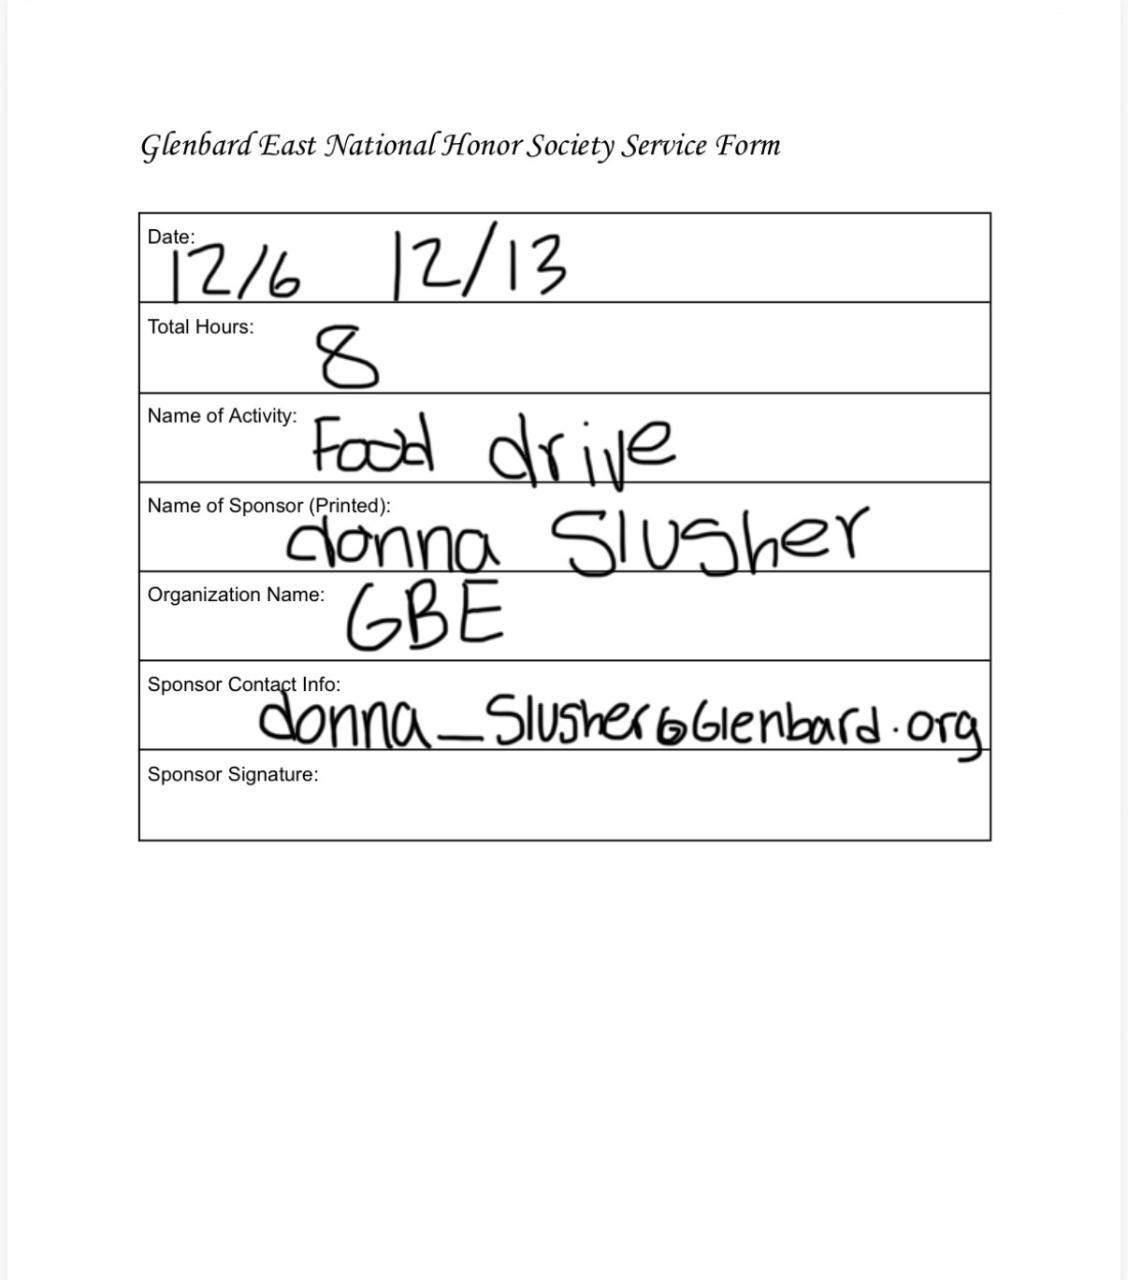 Glenbard East National Honor Society Service Form
Date: 12/6 12/13
Total Hours: 8
Name of Activity: Food drive
Name of Sponsor (Printed): donna Slusher
Organization Name: GBE
Sponsor Contact Info: donna_Slusher@Glenbard.org
Sponsor Signature: